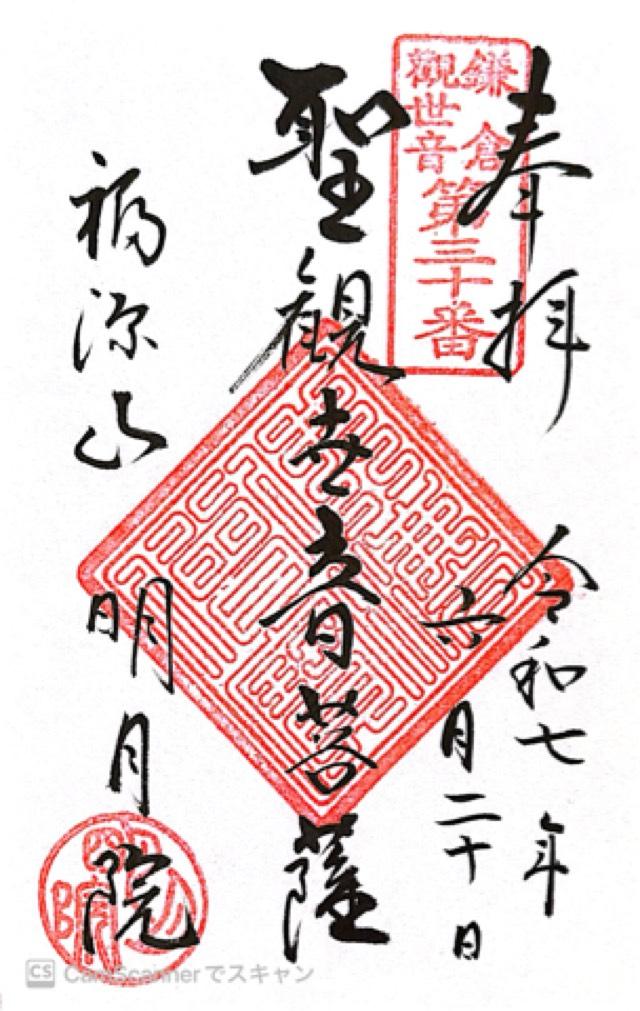 奉拝
令和七年
六月二十日
鎌倉
觀世音
第三十番
聖觀世音菩薩
福源山
明月院
CS CamScannerでスキャン